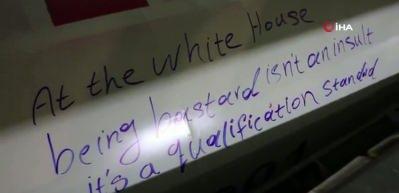 İHA
At the White House
being bastard isn't an insult
it's a qualification standed